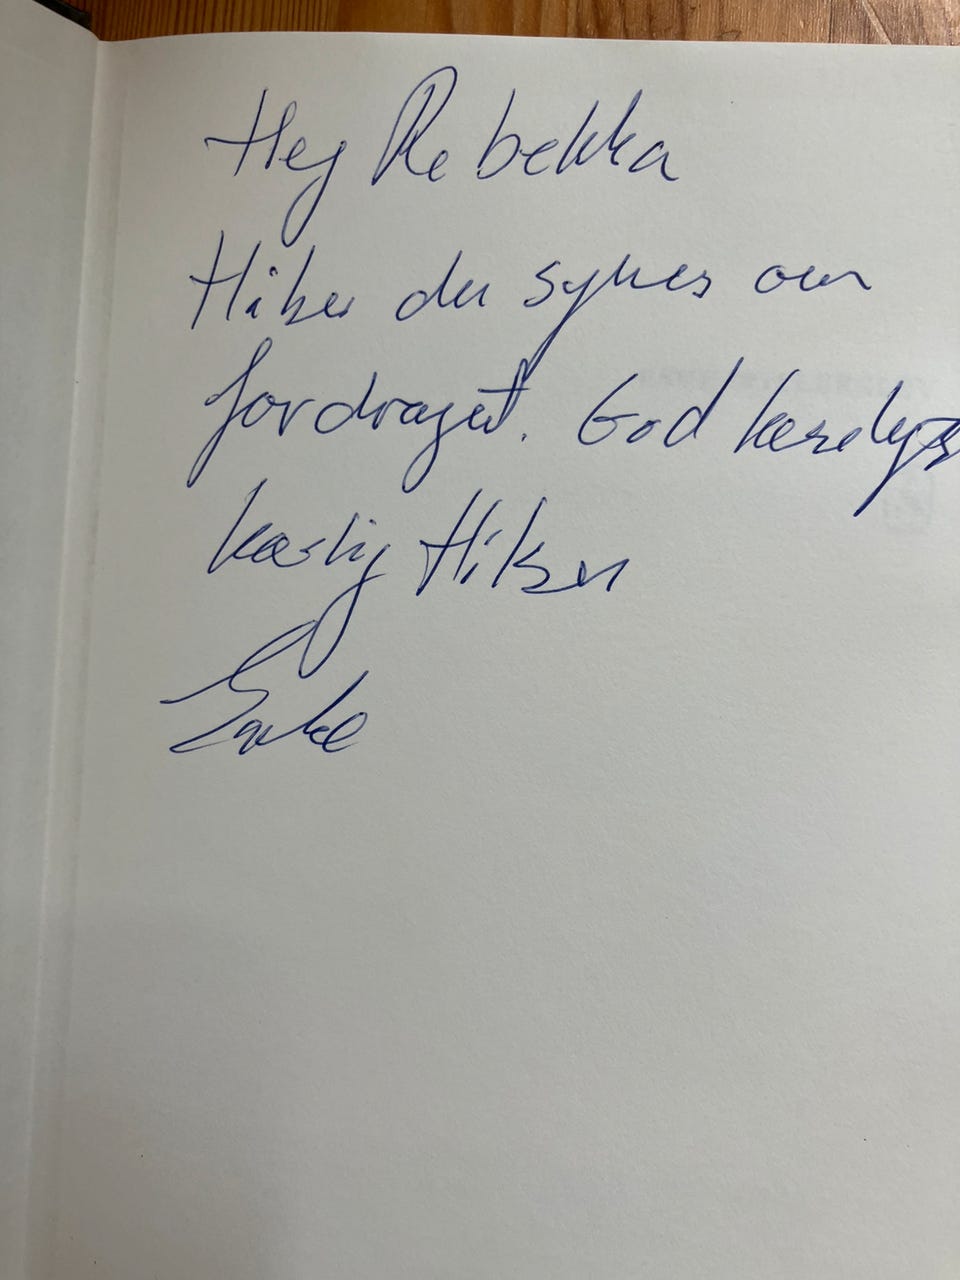 Hej Rebekka
Håber du synes om
fordraget. God læselyst
kærlig Hilsen